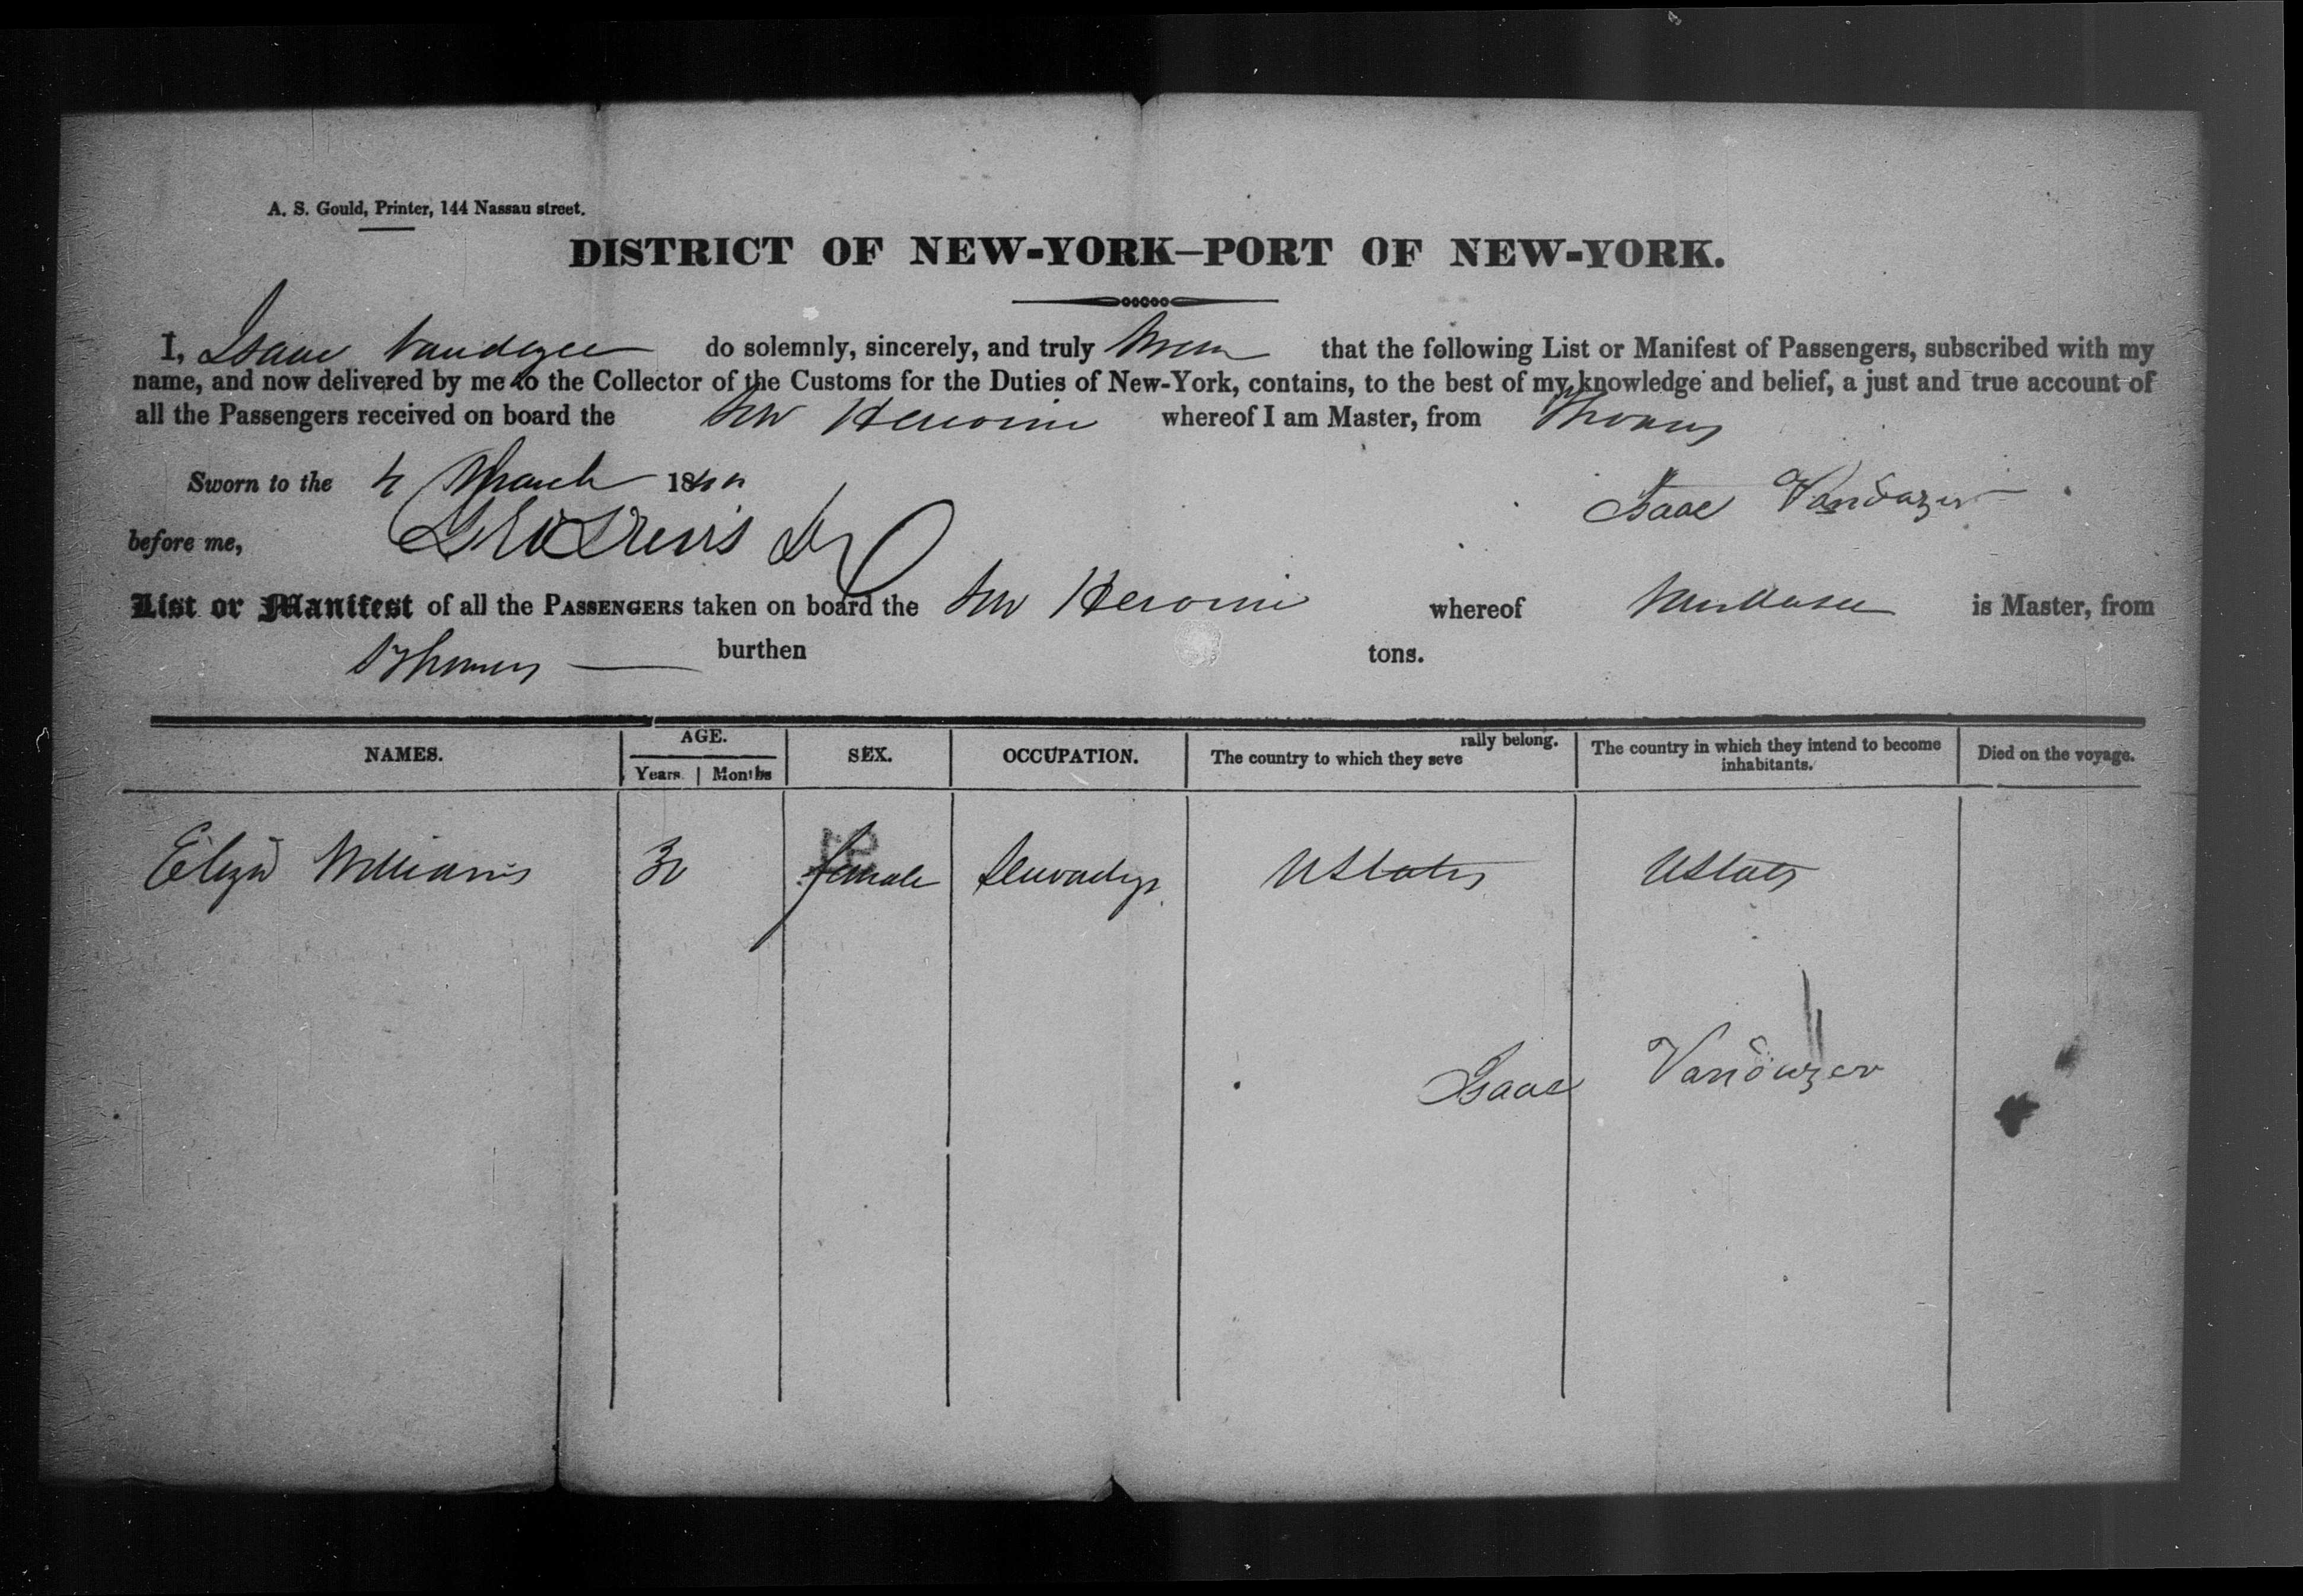 A. S. Gould, Printer, 144 Nassau street.
DISTRICT OF NEW-YORK–PORT OF NEW-YORK.
I, Isaac do solemnly, sincerely, and truly that the following List or Manifest of Passengers, subscribed with my
name, and now delivered by me to the Collector of the Customs for the Duties of New-York, contains, to the best of my knowledge and belief, a just and true account of
all the Passengers received on board the whereof I am Master, from
Sworn to the 4 March 18
Isaac Vanduzer
before me,
List or Manifest of all the PASSENGERS taken on board the whereof is Master, from
burthen tons.
NAMES. AGE. Years. Months SEX. OCCUPATION. The country to which they seve rally belong. The country in which they intend to become inhabitants. Died on the voyage.
Eliza Williams 30 female UStates UStates
Isaac Vanduzer